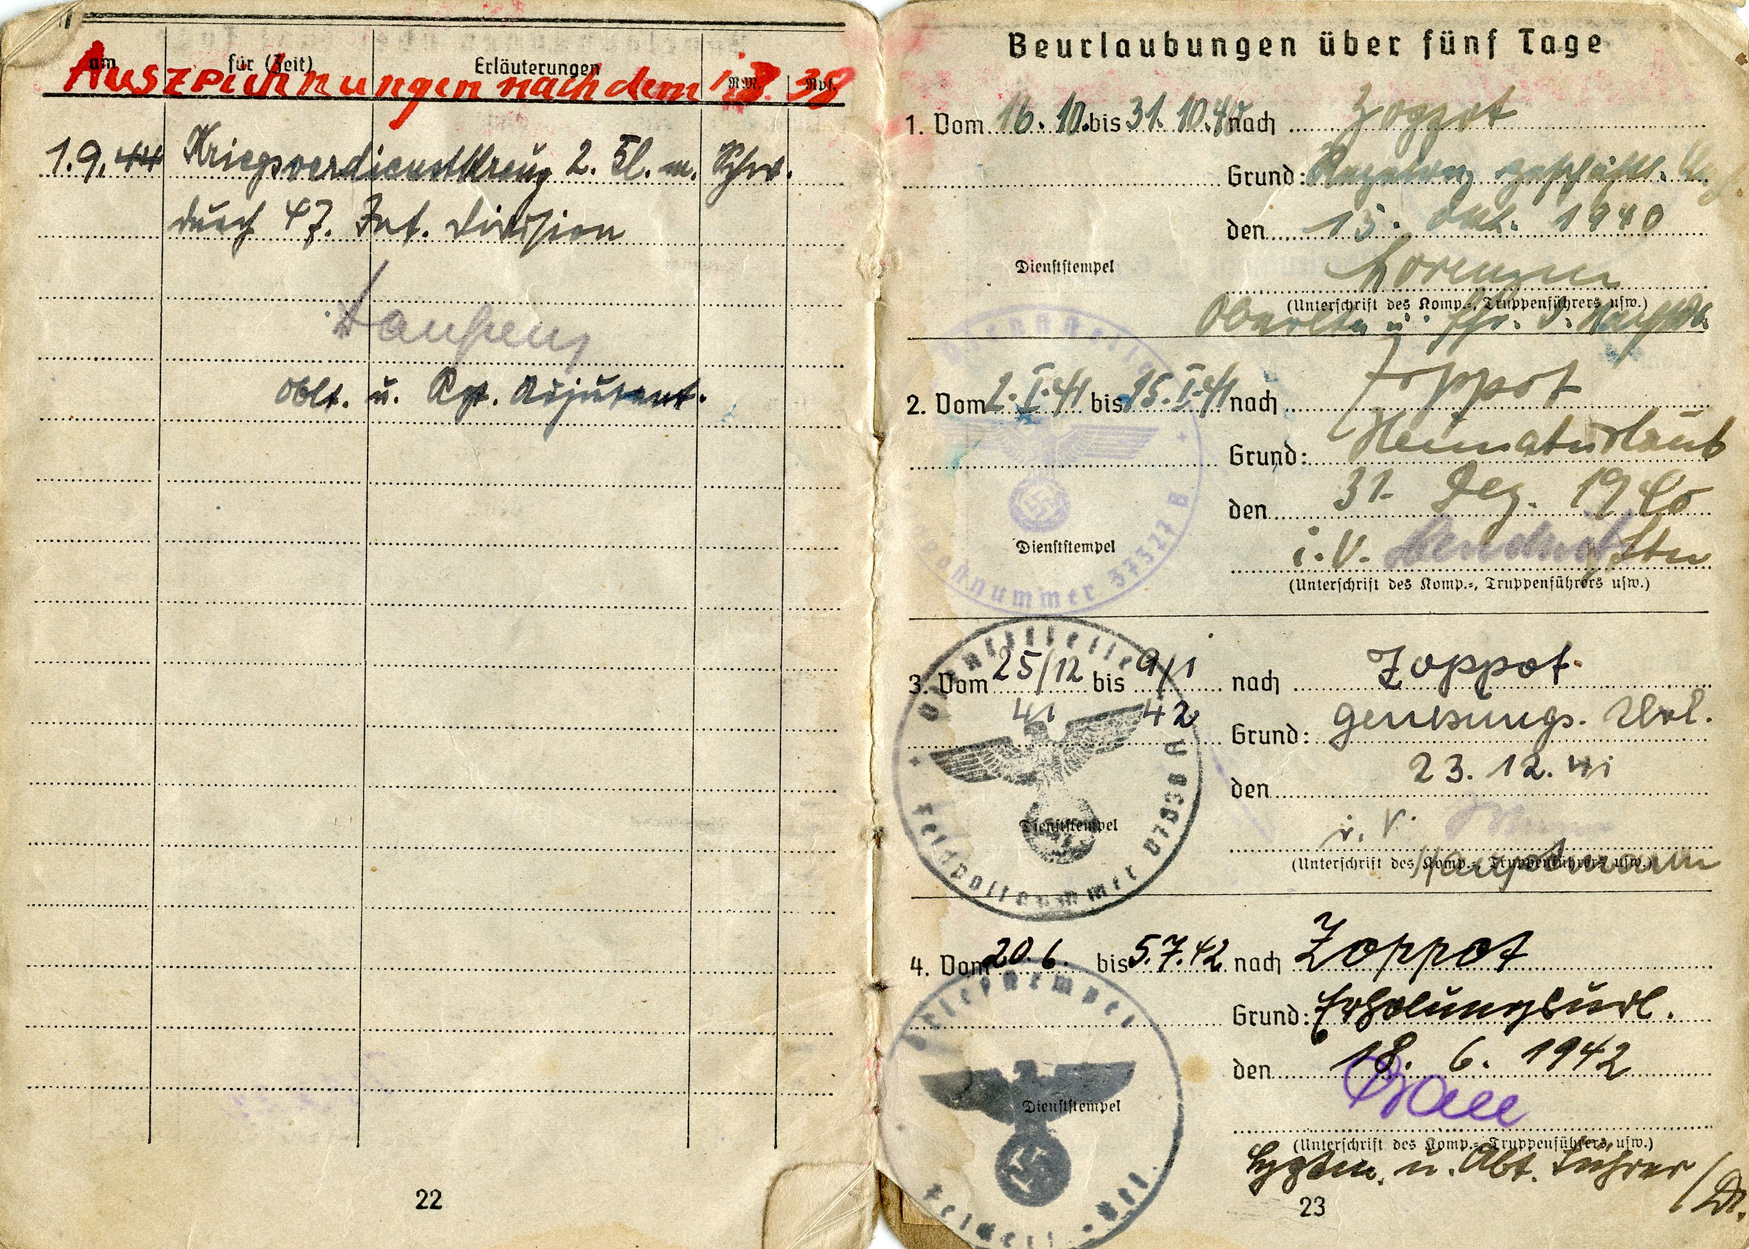 am für (Zeit) Erläuterungen RM. Rpf.
Auszeichnungen nach dem 1.9.39
1.9.44 Kriegsverdienstkreuz 2. Kl. m. Schw.
durch 47. Inf. Division
Oblt. u. Rgt. Adjutant.
22
Beurlaubungen über fünf Tage
1. Vom 16.10. bis 31.10.40 nach Zoppot
Grund:
den 15. Okt. 1940
Dienststempel
(Unterschrift des Komp.-, Truppenführers usw.)
Dienststelle
2. Vom 2.I.41 bis 15.I.41 nach Zoppot
Grund: Heimaturlaub
den 31. Dez. 1940
i.V. Ltn
Dienststempel
(Unterschrift des Komp.-, Truppenführers usw.)
Feldpostnummer 37327 B
Dienststelle
3. Vom 25/12 bis 9/1 nach Zoppot
41 42
Grund: Genesungs. Url.
den 23.12.41
i.V.
Dienststempel
(Unterschrift des Komp.-, Truppenführers usw.)
Hauptmann
Feldpostnummer 07038 A
4. Vom 20.6. bis 5.7.42 nach Zoppot
Briefstempel
Grund: Erholungsurl.
den 18. 6. 1942
Dienststempel
(Unterschrift des Komp.-, Truppenführers usw.)
Hptm. u. Abt. Führer
23